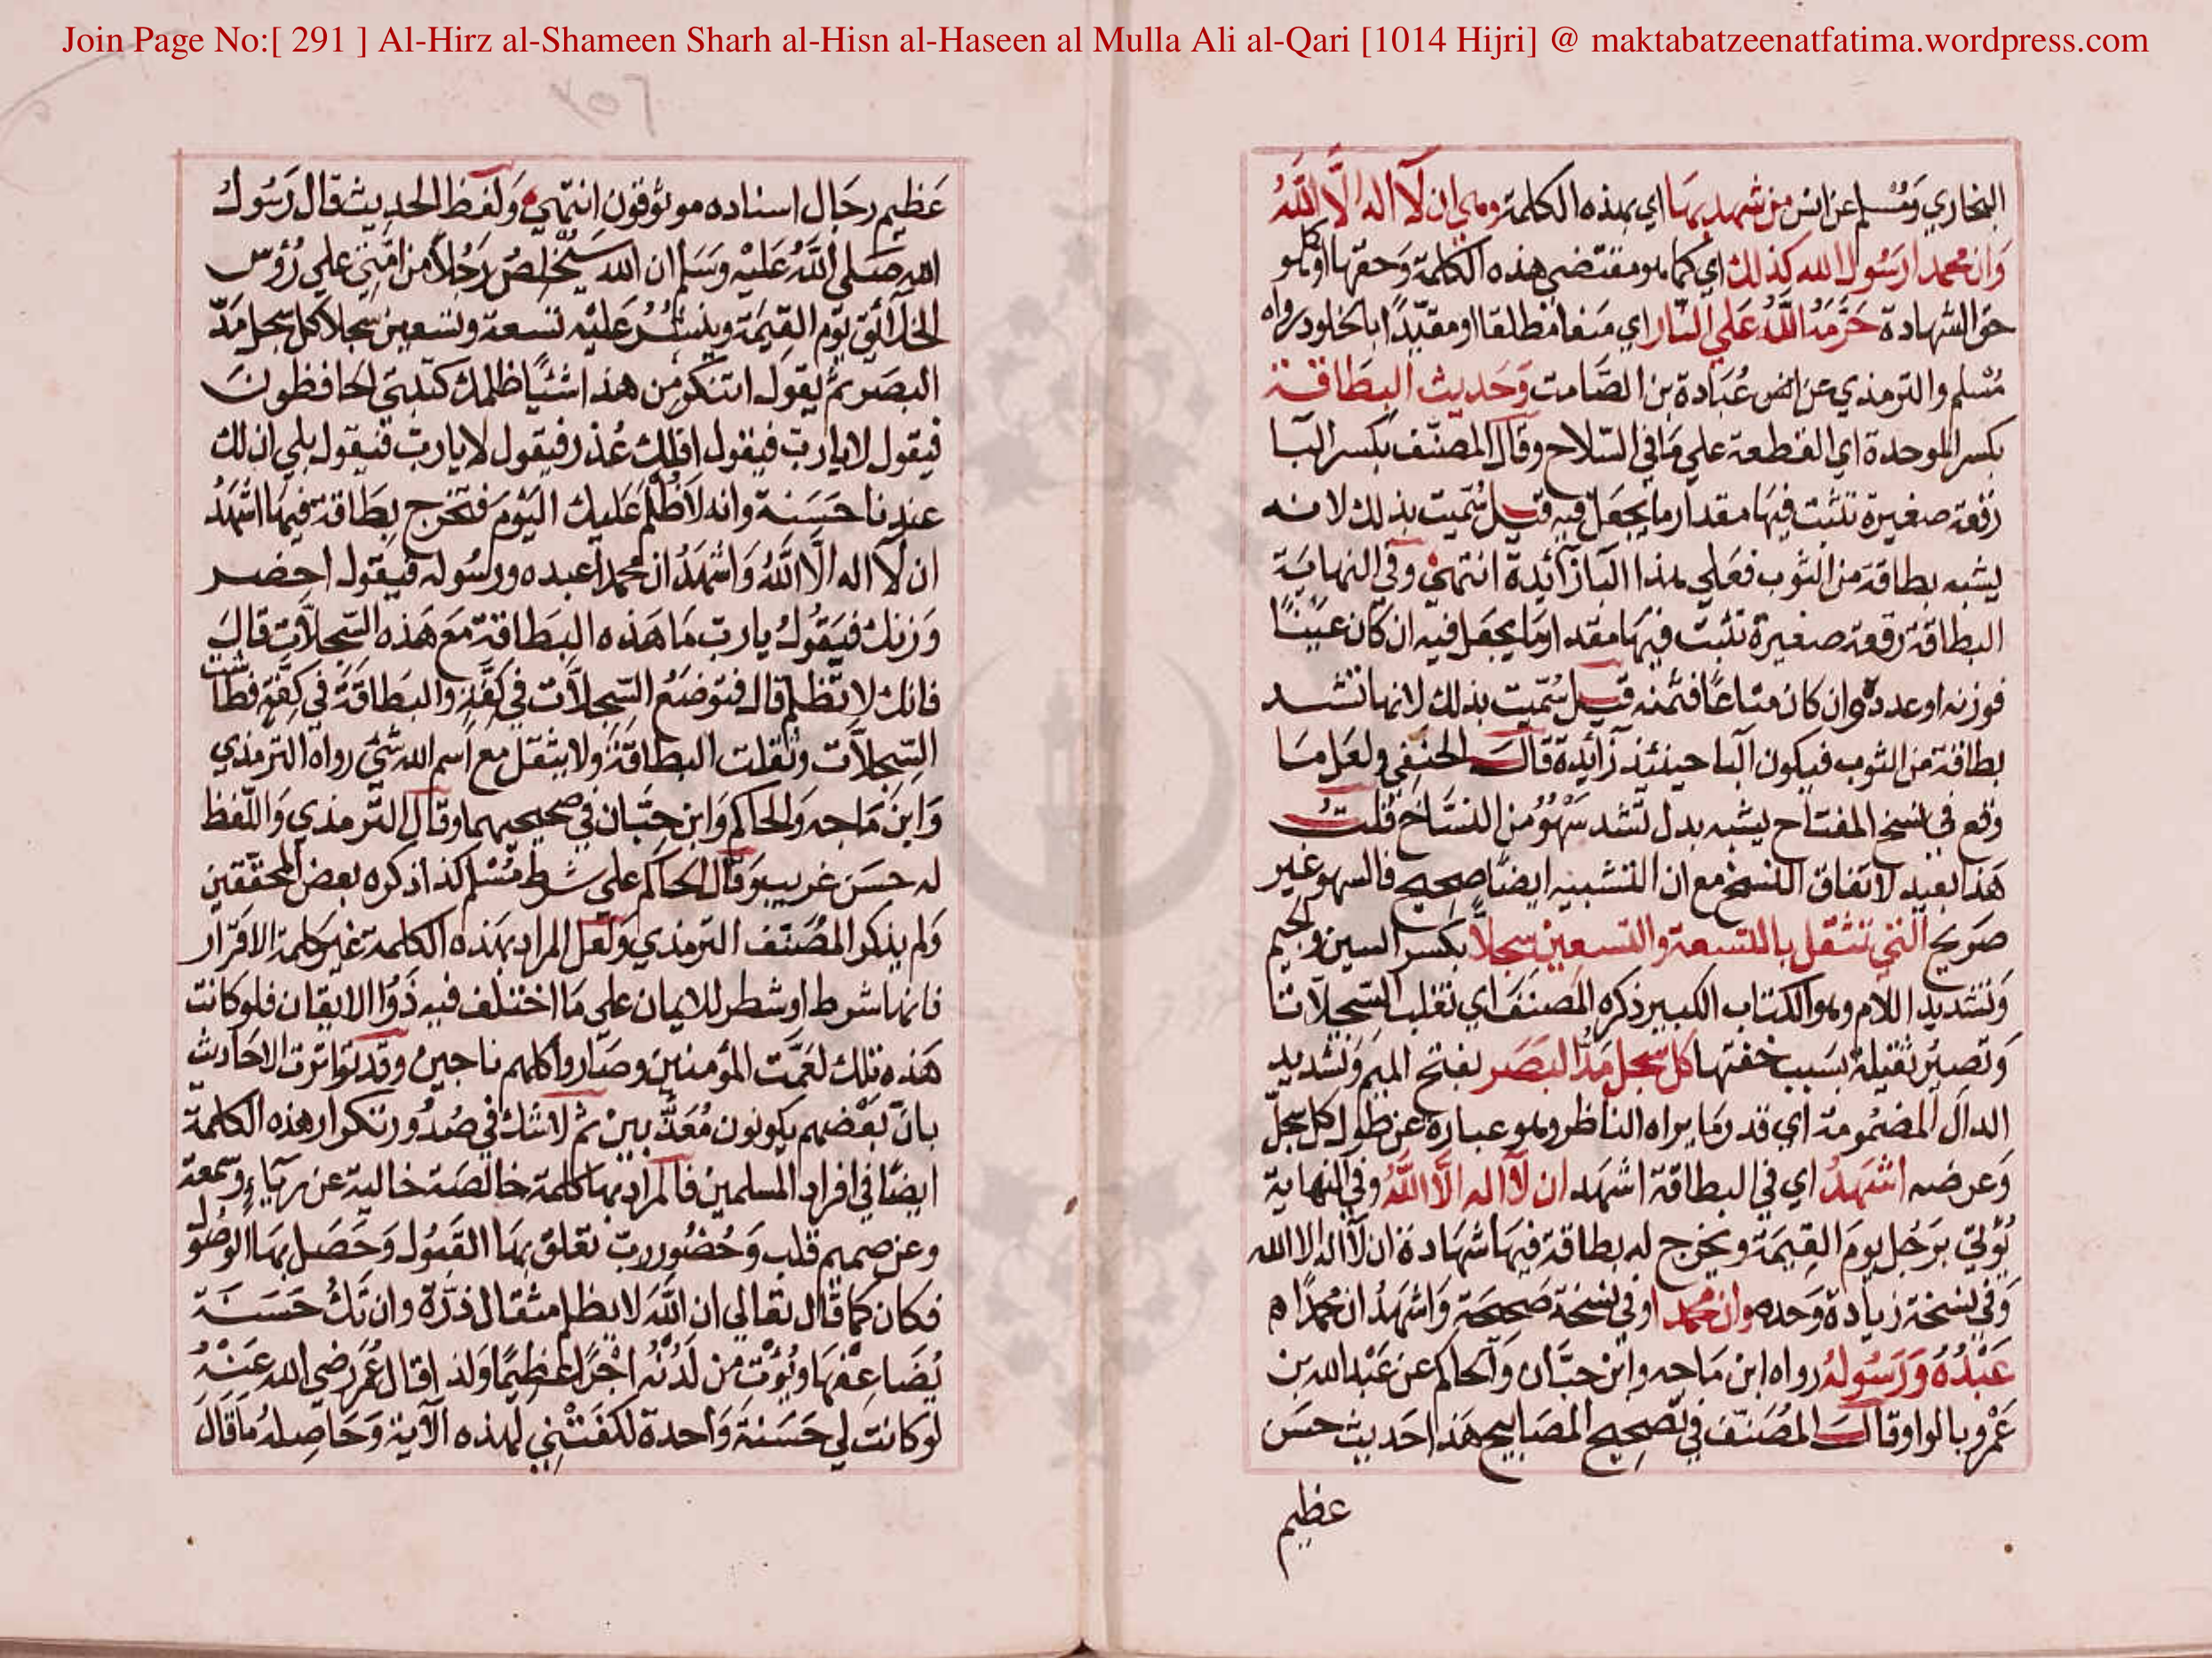 Join Page No:[ 291 ] Al-Hirz al-Shameen Sharh al-Hisn al-Haseen al Mulla Ali al-Qari [1014 Hijri] @ maktabatzeenatfatima.wordpress.com
البخاري ومسلم عن انس من شهد بها اي بهذه الكلمة وهي ان لا اله الا الله
وان محمدا رسول الله كذلك اي كما هو مقتضى هذه الكلمة وحقها او كما هو
حق الشهادة حرمه الله على النار اي منعا مطلقا او مقيدا بالخلود رواه
مسلم والترمذي عن عبادة بن الصامت وحديث البطاقة
بكسر الموحدة اي القطعة على ما في السلاح وقال المصنف بكسر البا
رقعة صغيرة تثبت فيها مقدار ما يجعل فيه قيل سميت بذلك لانه
يشبه بطاقة من الثوب فعلي هذا البا زائدة انتهى وفي النهاية
البطاقة رقعة صغيرة تثبت فيها مقدار ما يجعل فيه ان كان عينا
فوزنه او عدده وان كان متاعا فثمنه قيل سميت بذلك لانها تشد
بطاقة من الثوب فيكون البا حينئذ زائدة قال الحنفي ولعل ما
وقع في نسخ المفتاح يشبه بدل تشد سهو من النساخ قلت
هذا بعيد لاتفاق النسخ مع ان التشبيه ايضا صحيح فالسهو غير
صريح التي تثقل بالتسعة والتسعين سجلا بكسر السين والجيم
وتشديد اللام وهو الكتاب الكبير ذكره المصنف اي تغلب السجلات
وتصير ثقيلة بسبب خفتها كل سجل مد البصر بفتح الميم وتشديد
الدال المضمومة اي قدر ما يراه الناظر وهو عبارة عن طول كل سجل
وعرضه اشهد اي في البطاقة اشهد ان لا اله الا الله وفي النهاية
يؤتى برجل يوم القيمة ويخرج له بطاقة فيها شهادة ان لا اله الا الله
وفي نسخة زيادة وحده وان محمدا وفي نسخة صحيحة واشهد ان محمدا
عبده ورسوله رواه ابن ماجه وابن حبان والحاكم عن عبد الله بن
عمرو بالواو قال المصنف في تصحيح المصابيح هذا حديث حسن
عظيم
عظيم رجال اسناده موثوقون انتهى ولفظ الحديث قال رسول
الله صلى الله عليه وسلم ان الله سيخلص رجلا من امتي على رؤس
الخلائق يوم القيمة وينشر عليه تسعة وتسعين سجلا كل سجل مد
البصر ثم يقول اتنكر من هذا شئيا اظلمك كتبتي الحافظون
فيقول لا يا رب فيقول افلك عذر فيقول لا يا رب فيقول بلى ان لك
عندنا حسنة وانه لا ظلم عليك اليوم فتخرج بطاقة فيها اشهد
ان لا اله الا الله واشهد ان محمدا عبده ورسوله فيقول احضر
وزنك فيقول يا رب ما هذه البطاقة مع هذه السجلات قال
فانك لا تظلم قال فتوضع السجلات في كفة والبطاقة في كفة فطاشت
السجلات وثقلت البطاقة ولا يثقل مع اسم الله شئ رواه الترمذي
وابن ماجه والحاكم وابن حبان في صحيحيهما وقال الترمذي واللفظ
له حسن غريب وقال الحاكم على شرط مسلم كذا ذكره بعض المحققين
ولم يذكر المصنف الترمذي ولعل المراد بهذه الكلمة غير كلمة الاقرار
فانها شرط او شطر للايمان على ما اختلف فيه ذووا الايقان فلو كانت
هذه تلك لعمت المؤمنين وصاروا كلهم ناجين وقد تواترت الاحاديث
بان بعضهم يكونون معذبين ثم لا شك في صدور تكرار هذه الكلمة
ايضا في افراد المسلمين فالمراد بها كلمة خالصة خالية عن رياء وسمعة
وعن صميم قلب وحضور رب تعلق بها القبول وحصل بها الوصول
فكان كما قال تعالى ان الله لا يظلم مثقال ذرة وان تك حسنة
يضاعفها ويؤت من لدنه اجرا عظيما ولذا قال عمر رضي الله عنه
لو كانت لي حسنة واحدة لكفتني لهذه الآية وحاصله ما قال